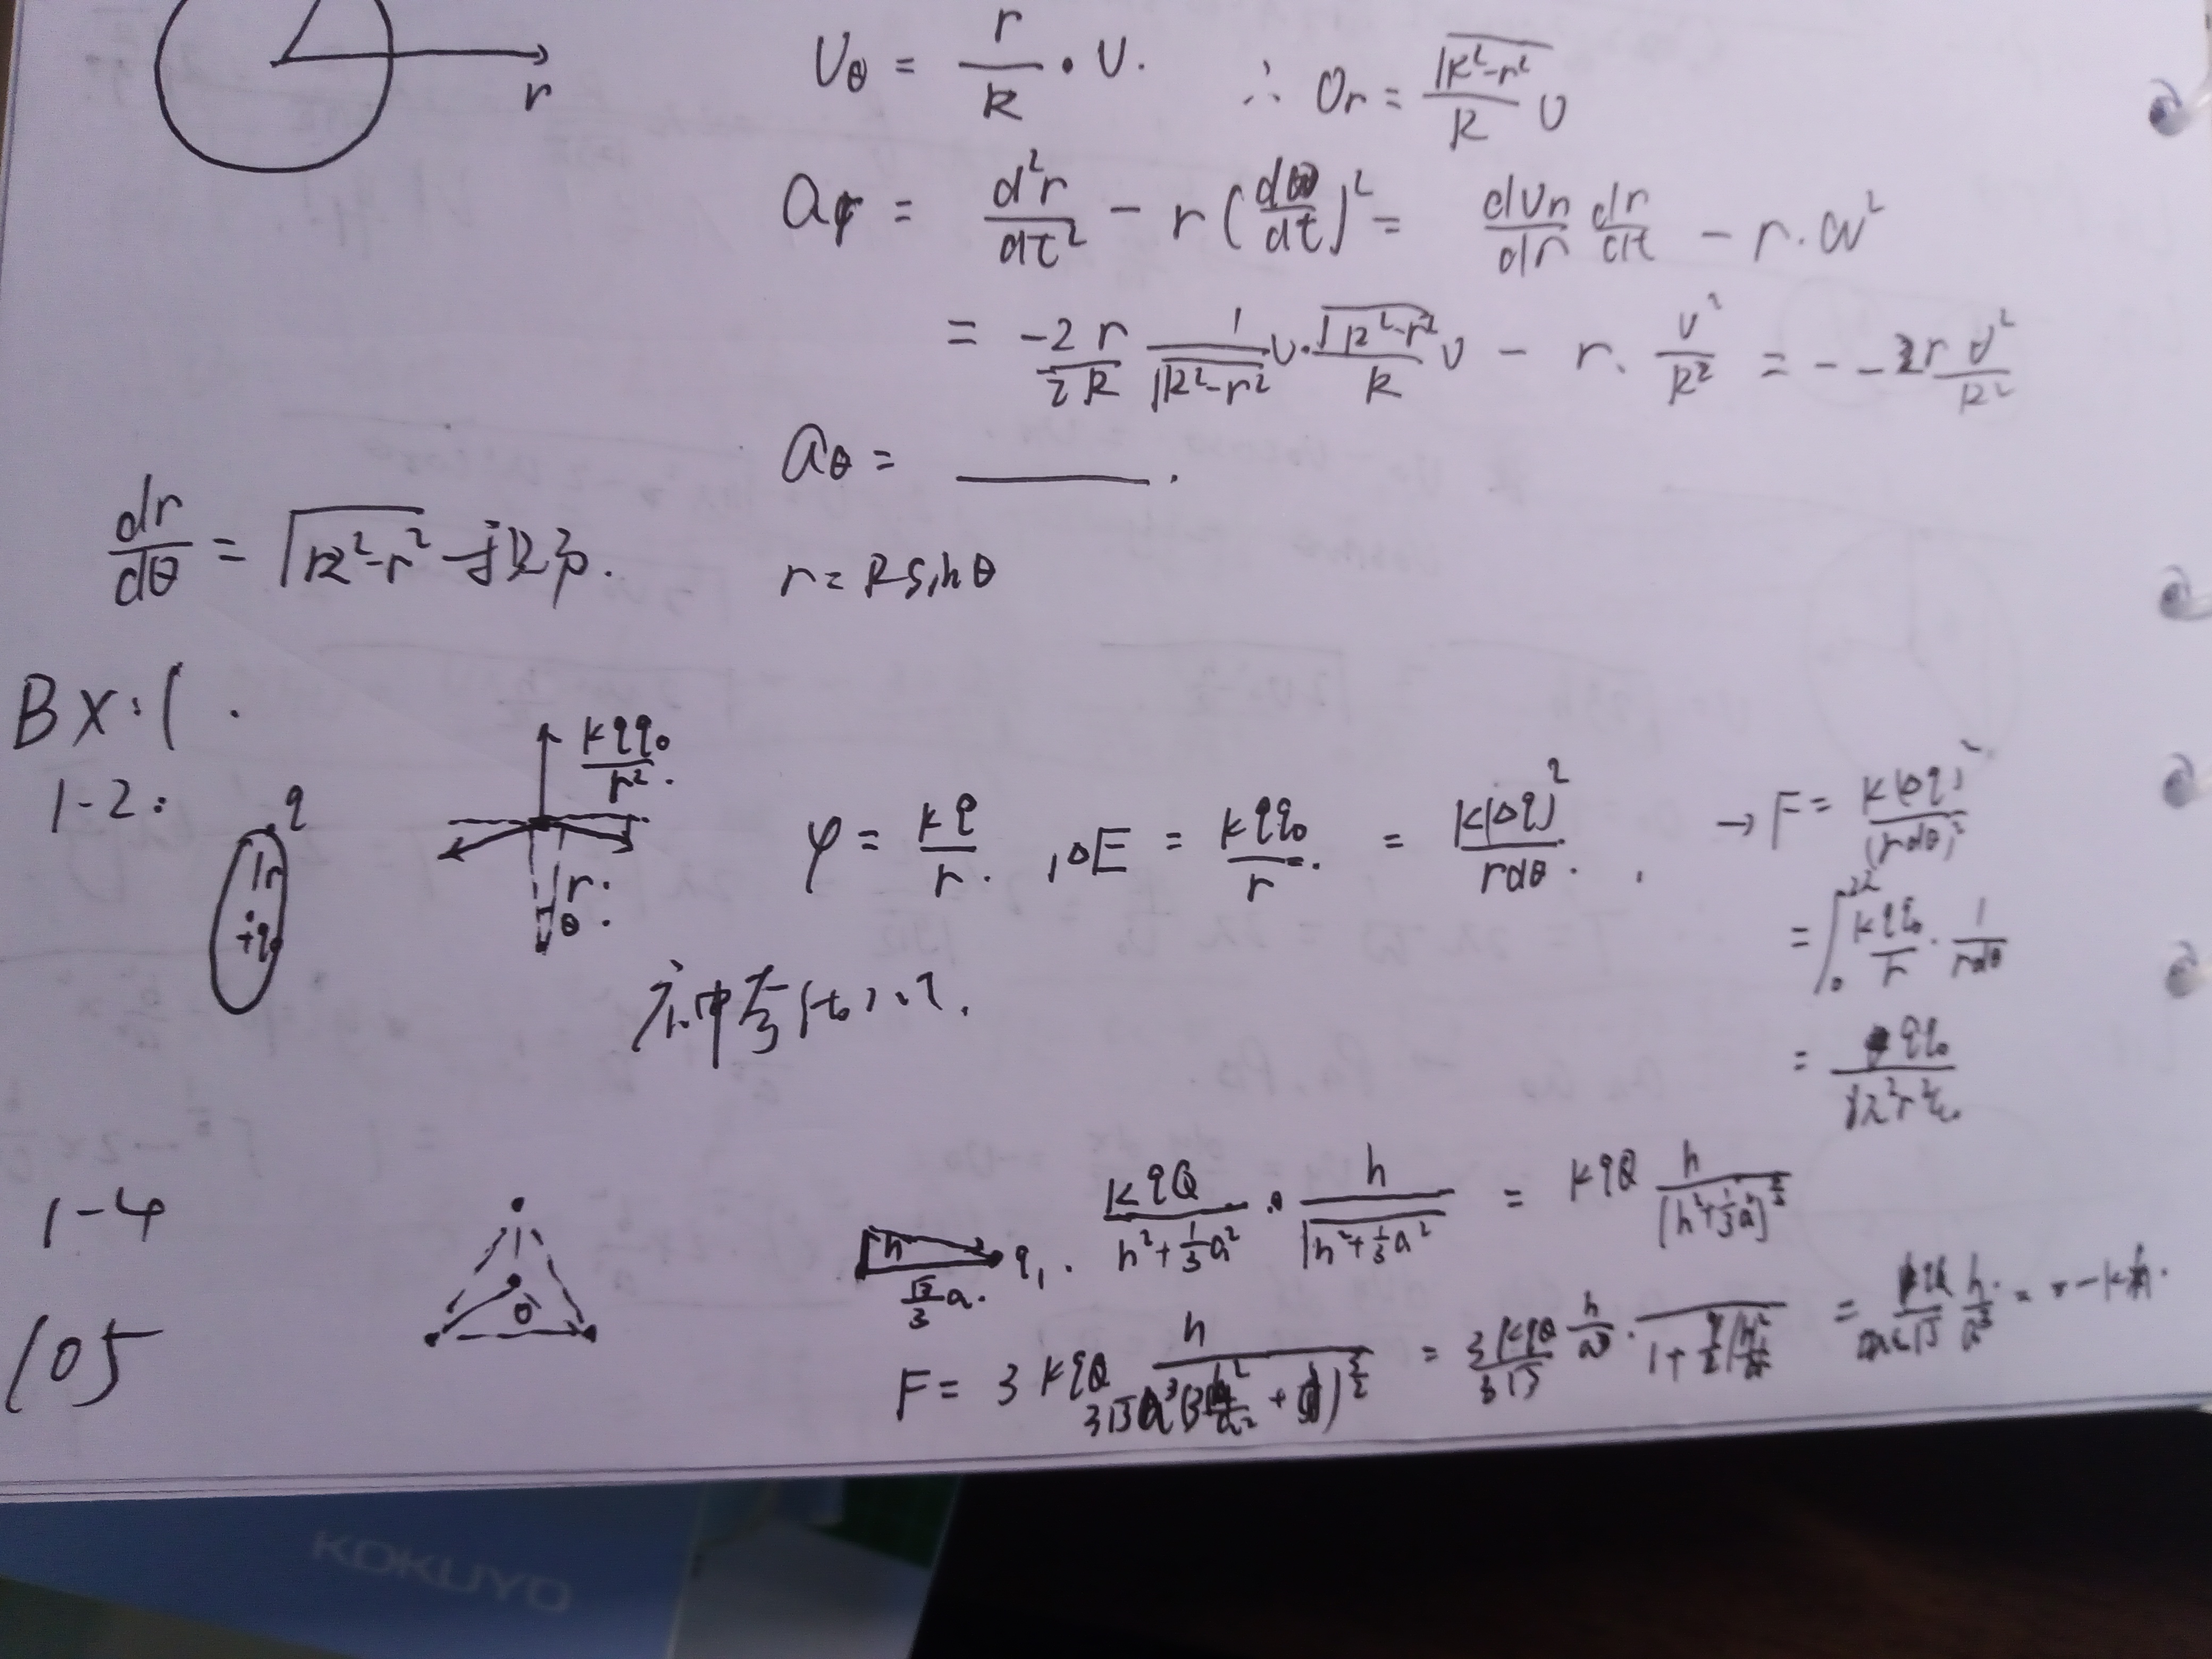 r
υθ = r/R · υ. ∴ υr = √(R²-r²)/R υ
ar = d²r/dt² - r(dθ/dt)² = dυr/dr dr/dt - r·ω²
= -2r/2R 1/√(R²-r²) υ · √(R²-r²)/R υ - r· υ²/R² = - -2r υ²/R²
aθ = ____.
dr/dθ = √(R²-r²)
r = R sin θ
BX:1.
1-2:
q
r
+q₀
kqq₀/r².
r.
θ.
φ = kq/r. , ΔE = kqq₀/r. = k(Δq)²/rdθ. . → F = k(Δq)²/(rdθ)²
= ∫₀^2π kqq₀/r · 1/rdθ
= qq₀/8π²r²ε₀
1-4
O
h
√3/3 a.
q₁.
kqQ/(h²+⅓a²) · h/√(h²+⅓a²) = kqQ h/(h²+⅓a²)^(3/2)
105
F = 3kqQ
KOKUYO